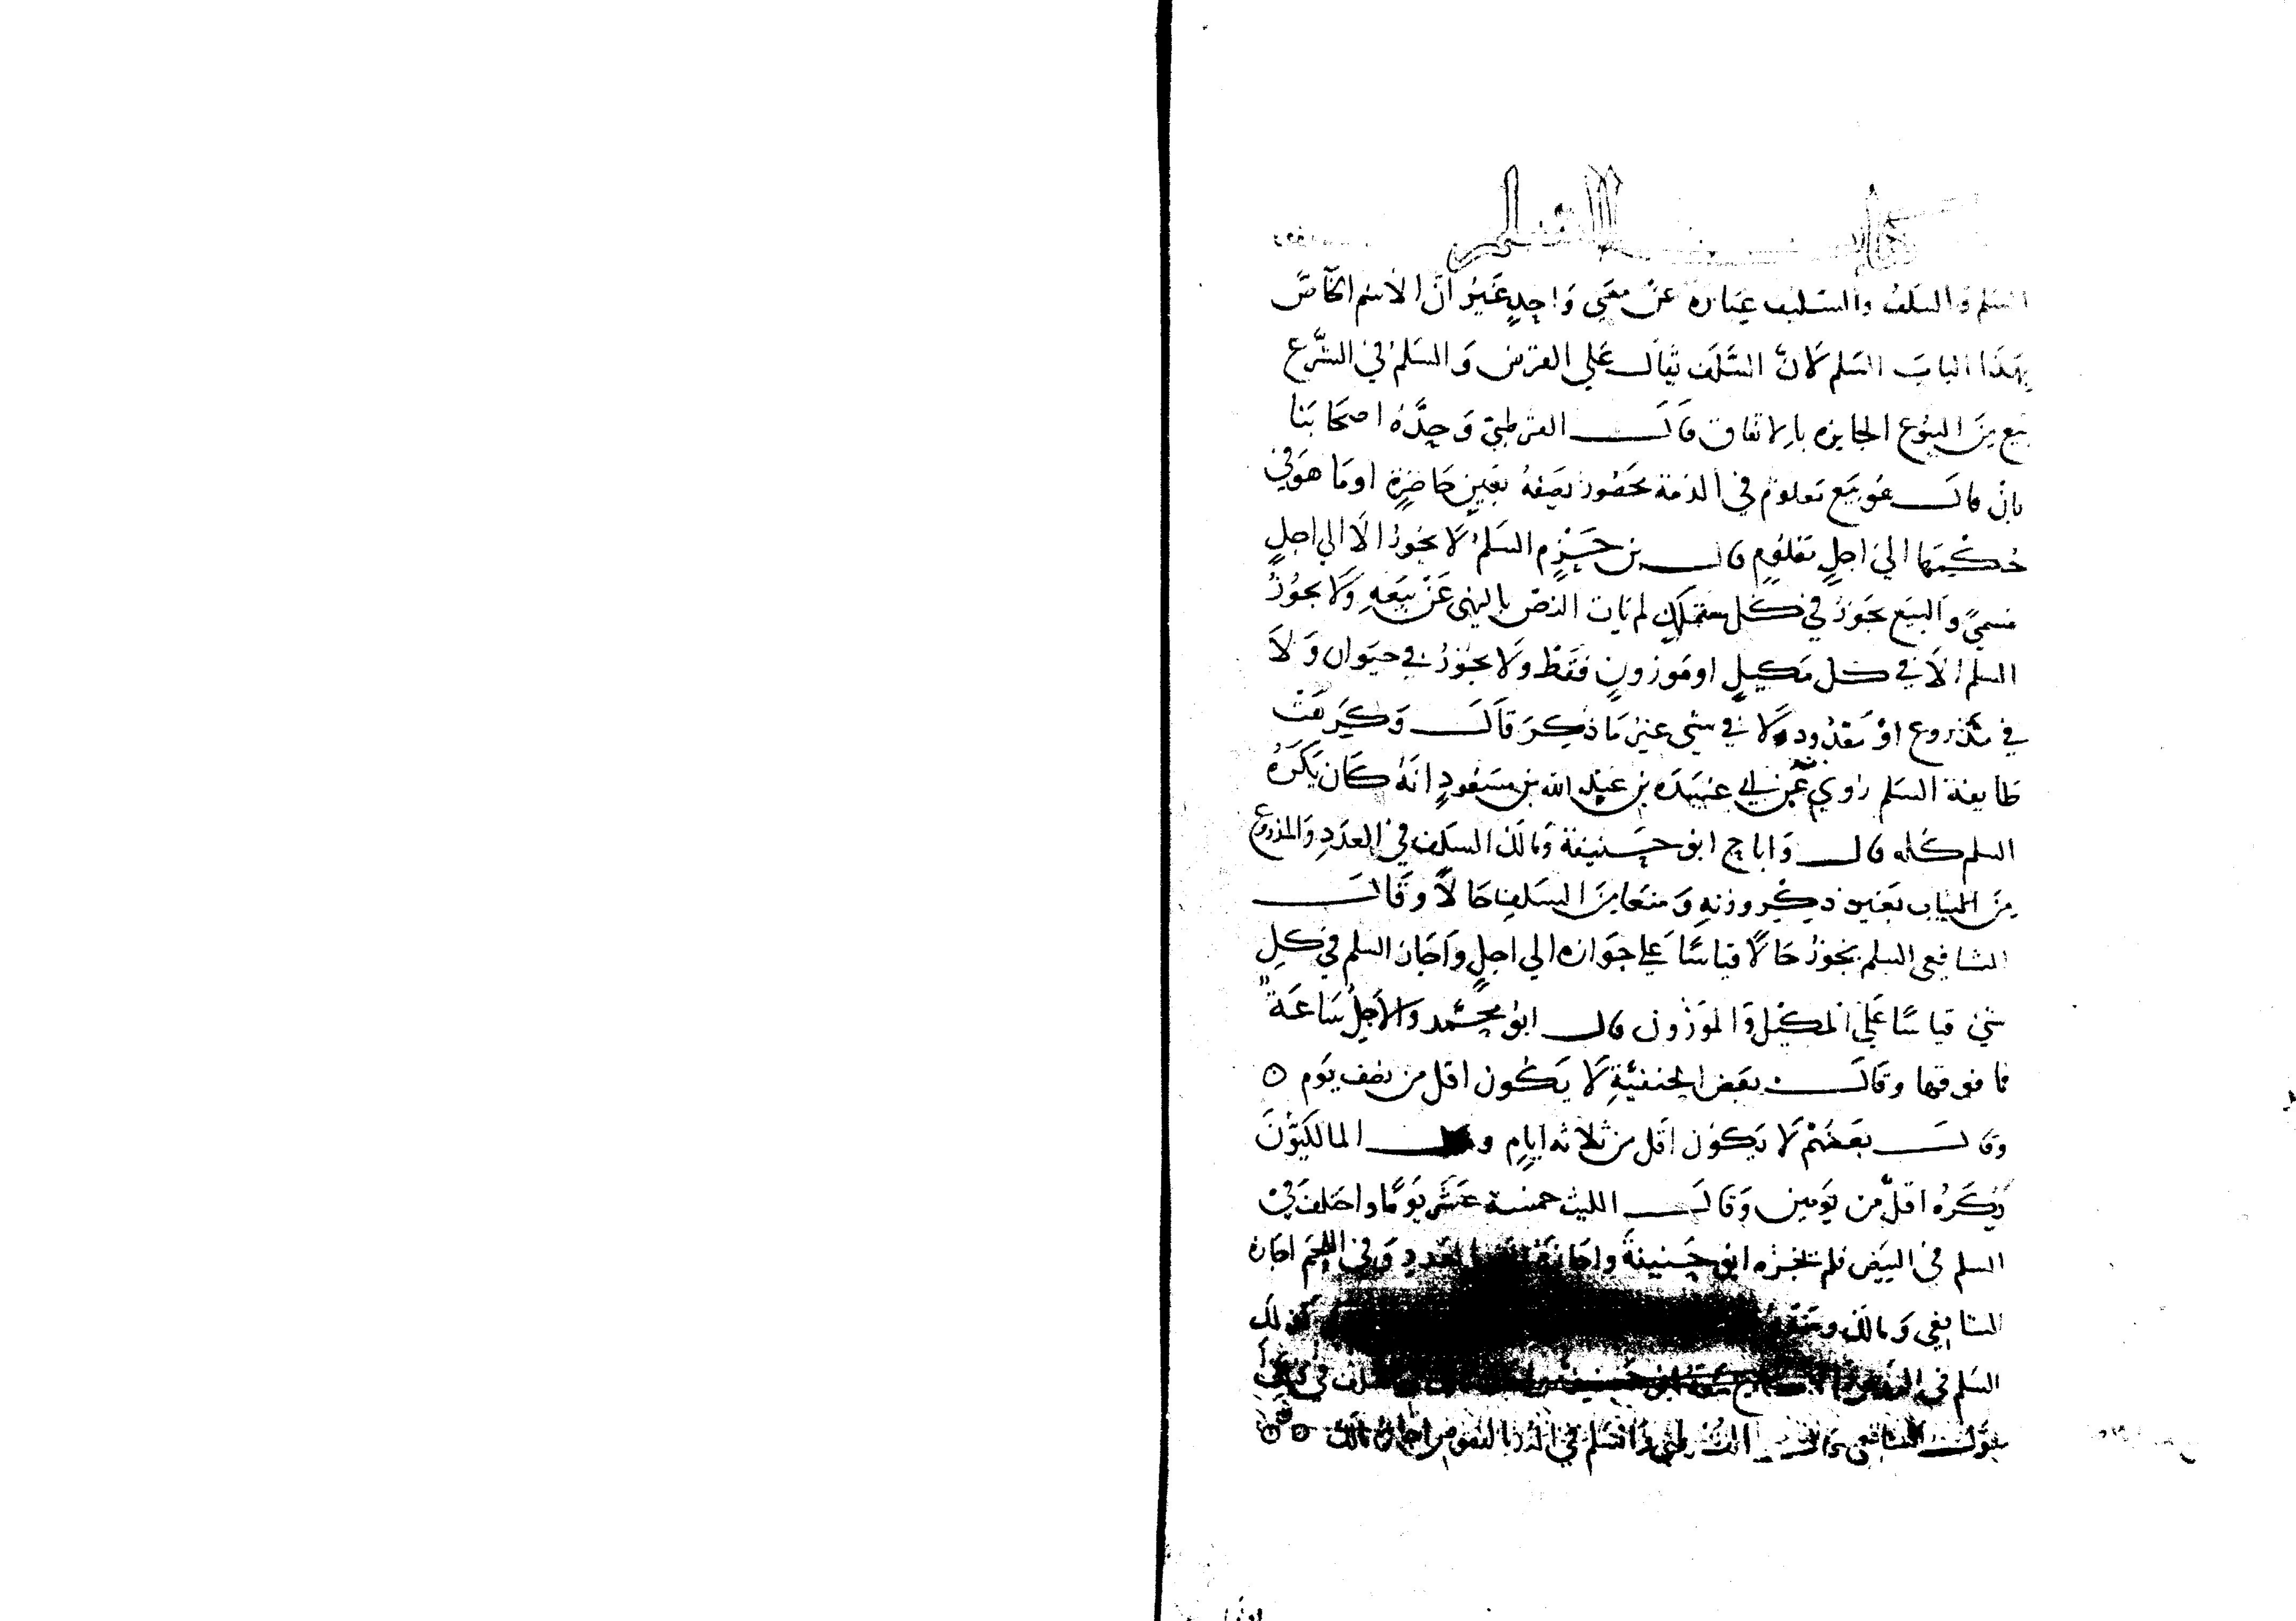 كتاب السلم
السلم والسلف والتسليف عبارة عن معنى واحد غير ان الاسم الخاص
بهذا الباب السلم لان السلف يقال على القرض والسلم في الشرع
بيع من البيوع الجايزه بالاتفاق قال القرطبي وحده اصحابنا
بان قالـ هو بيع معلوم في الذمة محصور بصفه بعين حاضرة او ما هو في
حكمها الي اجل معلوم قال بن حزم السلم لا يجوز الا الي اجل
مسمى والبيع يجوز في كل متملك لم يات النص بالنهى عن بيعه ولا يجوز
السلم الا في كل مكيل او موزون فقط ولا يجوز في حيوان ولا
في مذروع او معدود ولا في شي غير ما ذكر قال وكرهت
طايفة السلم روي عن ابي عبيده بن عبد الله بن مسعود انه كان يكره
السلم كله قال واباح ابو حنيفة ومالك السلف في العدد والمذروع
من الثياب بغير ذكر وزنه ومنعا من السلف حالا وقال
الشافعي السلم يجوز حالا قياسا علي جوازه الي اجل واجاز السلم في كل
شي قياسا على المكيل والموزون قال ابو محمد والاجل ساعة
فما فوقها وقال بعض الحنفية لا يكون اقل من نصف يوم ○
وقال بعضهم لا يكون اقل من ثلاثه ايام و المالكيون
يكره اقل من يومين وقال الليث خمسة عشر يوما واختلف في
السلم في البيض فلم يجزه ابو حنيفة واجازه بالعدد وفي اللحم اجازه
الشافعي ومالك ومنعه كذلك
السلم في ابو حنيفة السلف في
بقول الشافعي قال القرطبي والسلم في الدر بالنقوض اجازه مالك ○ ○